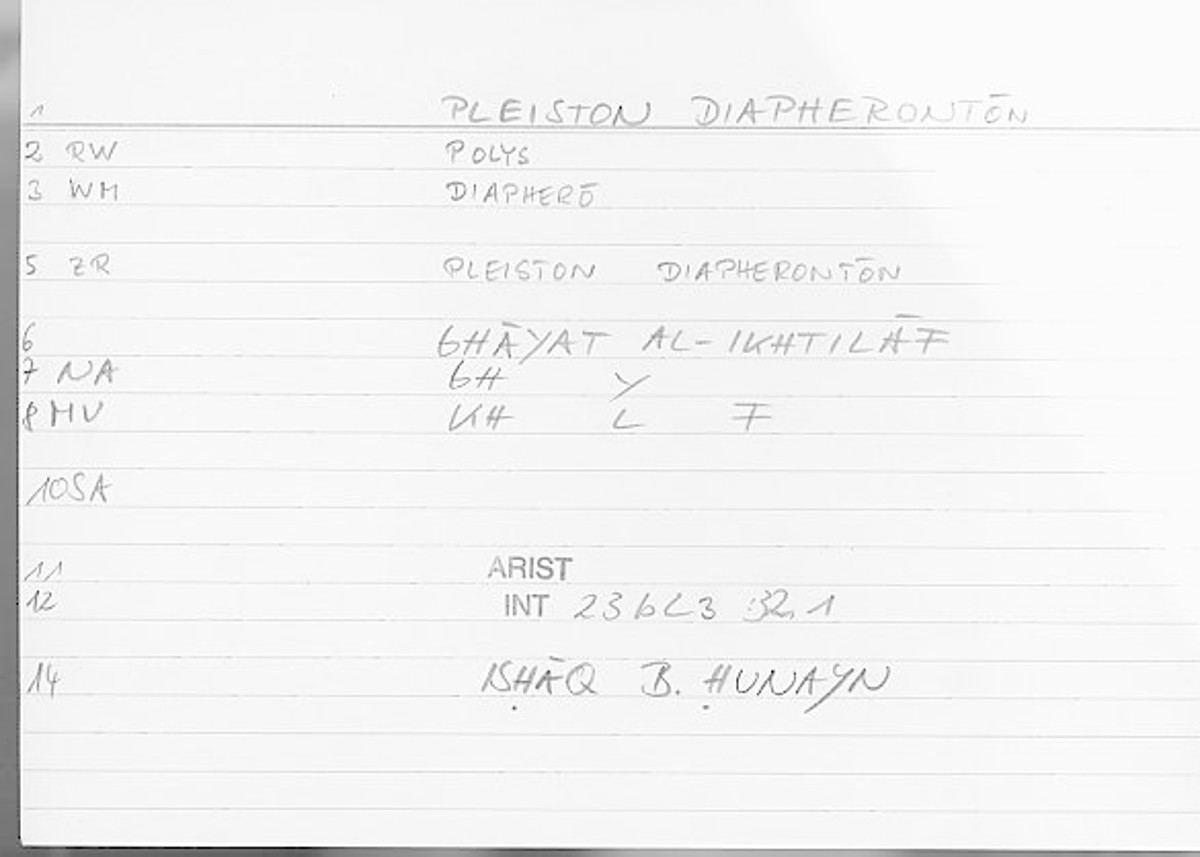 1 PLEISTON DIAPHERONTŌN
2 RW POLYS
3 WM DIAPHERŌ
5 ZR PLEISTON DIAPHERONTŌN
6 GHĀYAT AL-IKHTILĀF
7 NA GH Y
8 MU KH L F
10 SA
11 ARIST
12 INT 23b23 32,1
14 ISḤĀQ B. ḤUNAYN